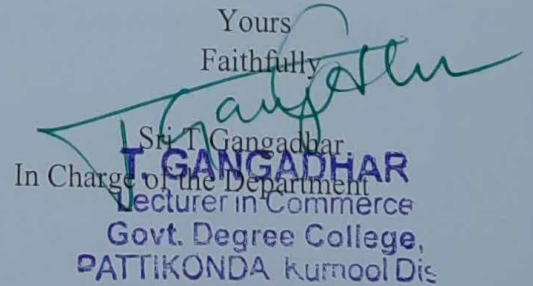 Yours
Faithfully
Sri T Gangadhar
In Charge of the Department
T. GANGADHAR
Lecturer in Commerce
Govt. Degree College,
PATTIKONDA Kurnool Dis